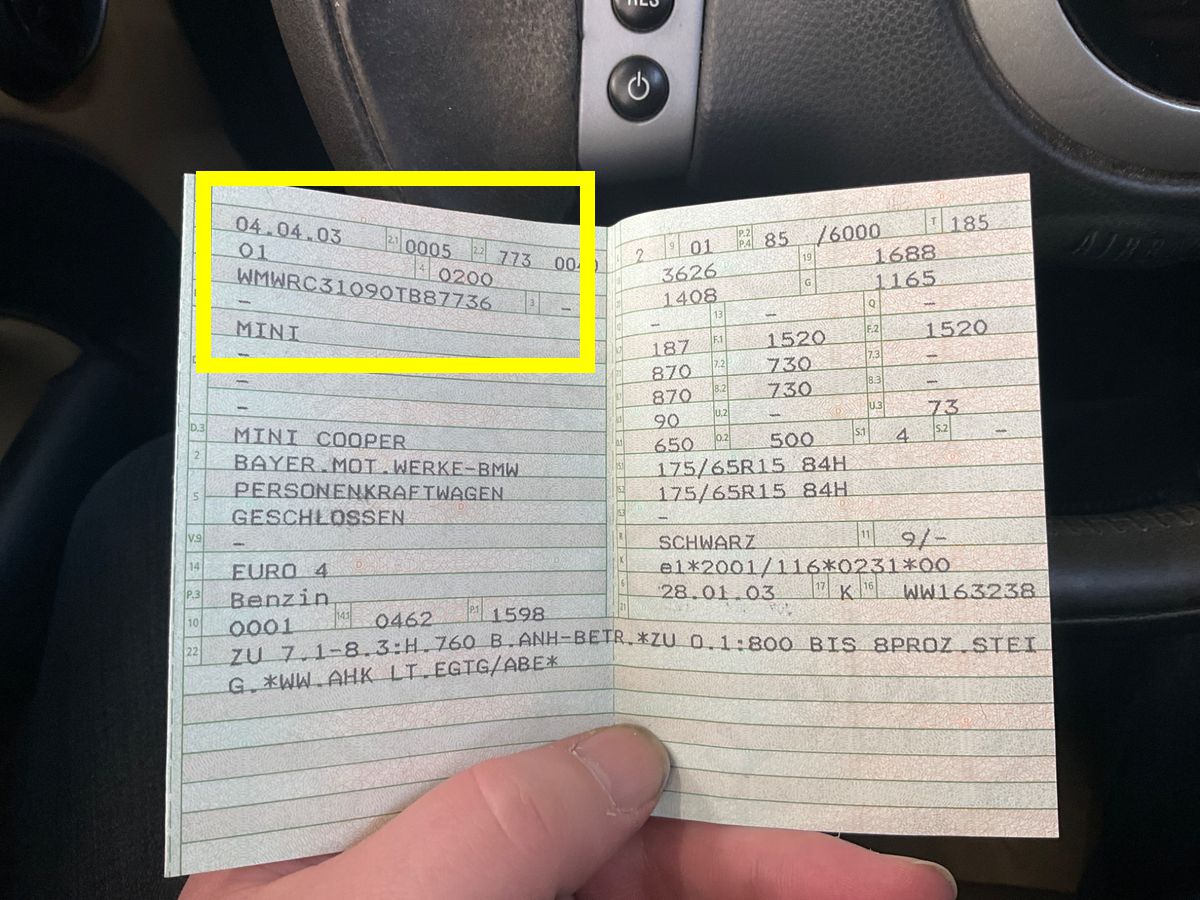 RES
04.04.03 2.1 0005 2.2 773 004
01 4 0200
WMWRC31090TB87736 3 –
–
MINI
–
–
–
D.3 MINI COOPER
2 BAYER.MOT.WERKE-BMW
5 PERSONENKRAFTWAGEN
GESCHLOSSEN
V.9 –
14 EURO 4
P.3 Benzin
10 0001 14.1 0462 P.1 1598
22 ZU 7.1-8.3:H.760 B.ANH-BETR.*ZU O.1:800 BIS 8PROZ.STEI
G.*WW.AHK LT.EGTG/ABE*
2 9 01 P.2 P.4 85 /6000 T 185
3626 19 1688
1408 G 1165
– 13 – Q –
187 F.1 1520 F.2 1520
870 7.2 730 7.3 –
870 8.2 730 8.3 –
90 U.2 – U.3 73
650 O.2 500 S.1 4 S.2 –
175/65R15 84H
175/65R15 84H
–
R SCHWARZ 11 9/–
K e1*2001/116*0231*00
6 28.01.03 17 K 16 WW163238
21
AIRB